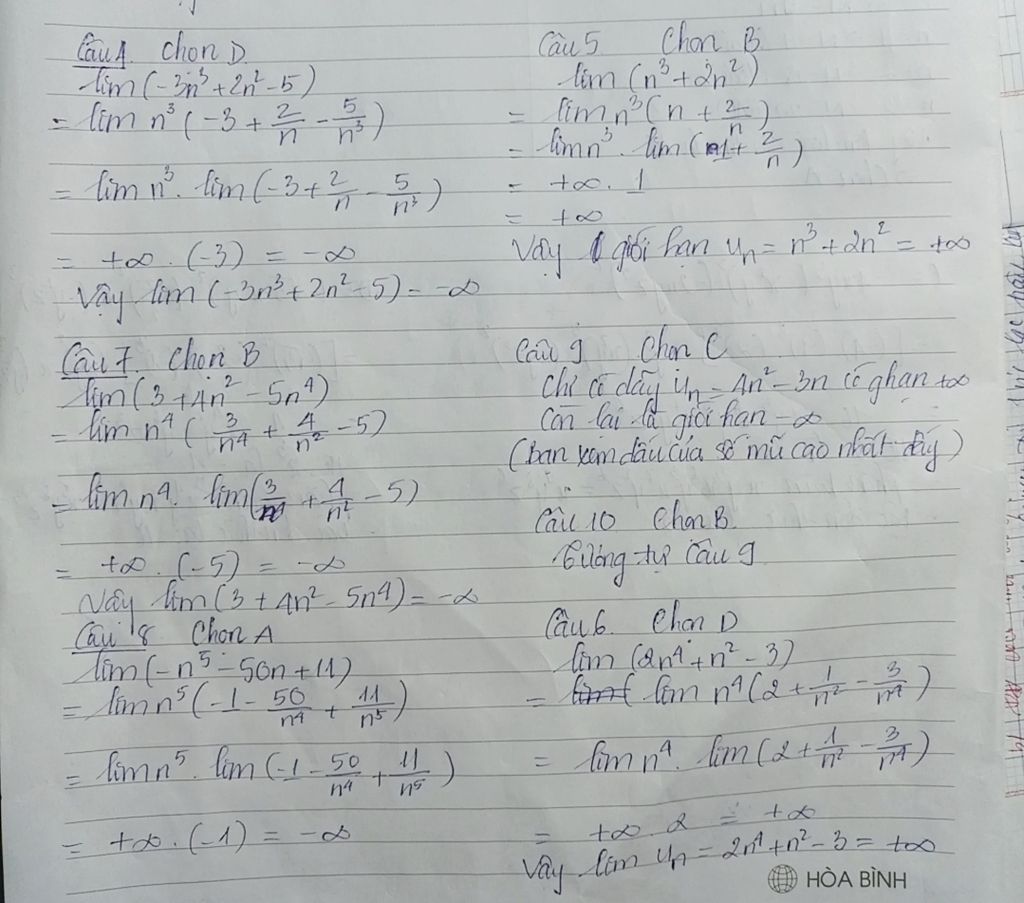 Câu 4. Chọn D
lim(-3n³+2n²-5)
= lim n³(-3 + 2/n - 5/n³)
= lim n³. lim(-3+2/n - 5/n³)
= +∞ . (-3) = -∞
Vậy lim(-3n³+2n²-5) = -∞
Câu 7. Chọn B
lim(3+4n²-5n⁴)
= lim n⁴(3/n⁴ + 4/n² - 5)
= lim n⁴. lim(3/n⁴ + 4/n² - 5)
= +∞ . (-5) = -∞
Vậy lim(3+4n²-5n⁴) = -∞
Câu 8 Chọn A
lim(-n⁵-50n+11)
= lim n⁵(-1 - 50/n⁴ + 11/n⁵)
= lim n⁵. lim(-1 - 50/n⁴ + 11/n⁵)
= +∞.(-1) = -∞
Câu 5 Chọn B
lim (n³+2n²)
= lim n³(n + 2/n)
= lim n³. lim(1 + 2/n)
= +∞. 1
= +∞
Vậy giới hạn uₙ = n³+2n² = +∞
Câu 9 Chọn C
Chỉ có dãy uₙ = 4n²-3n có ghạn +∞
Còn lại là giới hạn -∞
(bạn xem dấu của số mũ cao nhất đấy)
Câu 10 Chọn B
Tương tự câu 9
Câu 6. Chọn D
lim (2n⁴+n²-3)
= lim n⁴(2 + 1/n² - 3/n⁴)
= lim n⁴. lim(2 + 1/n² - 3/n⁴)
= +∞. 2 = +∞
Vậy lim uₙ = 2n⁴+n²-3 = +∞
HÒA BÌNH